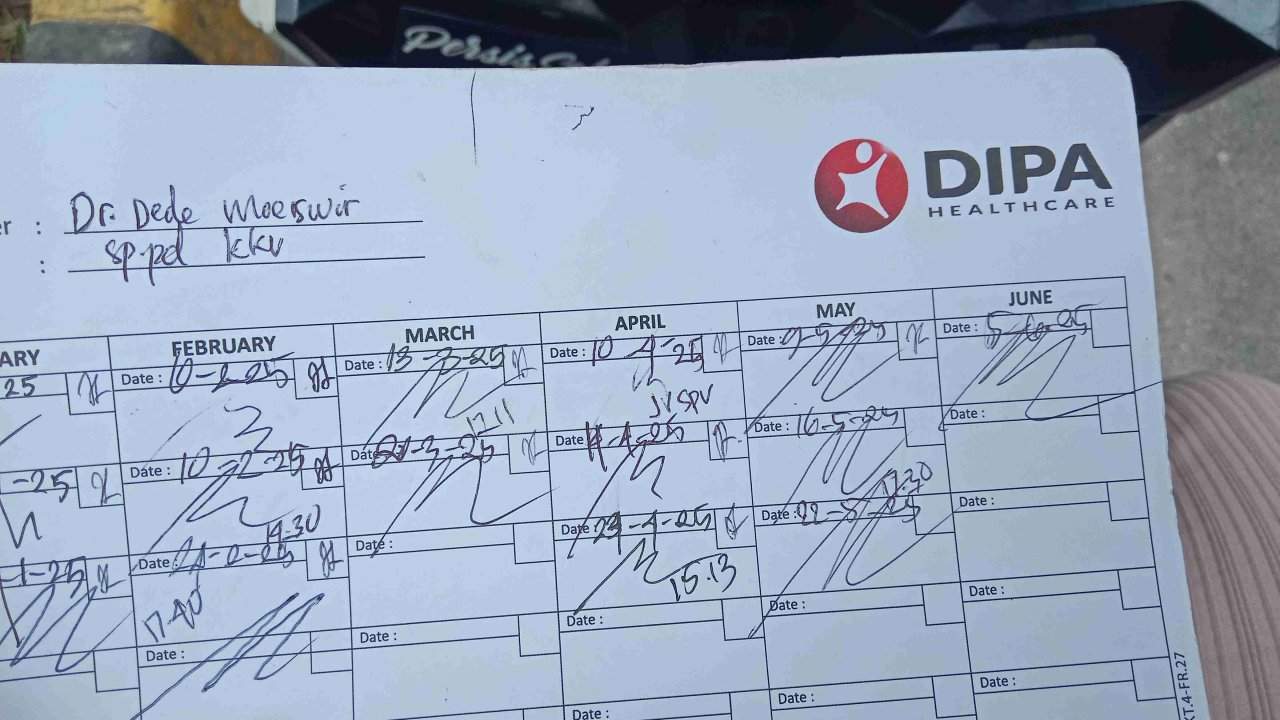 Persis
DIPA
HEALTHCARE
er : Dr. Dede Moerswir
: sp.pd kkv
ARY FEBRUARY MARCH APRIL MAY JUNE
25 Date : 10-2-25 Date : 13-3-25 Date : 10-4-25 Date : 9-5-25 Date : 5-6-25
JV SPV
17.11
-25 Date : 10-2-25 Date : -3-25 Date : -4-25 Date : 16-5-25 Date :
14.30 17.30
-1-25 Date : -2-25 Date : Date : -4-25 Date : 22-5-25 Date :
17.40 15.13
Date : Date : Date : Date : Date :
Date : Date : Date :
KT.4-FR.27